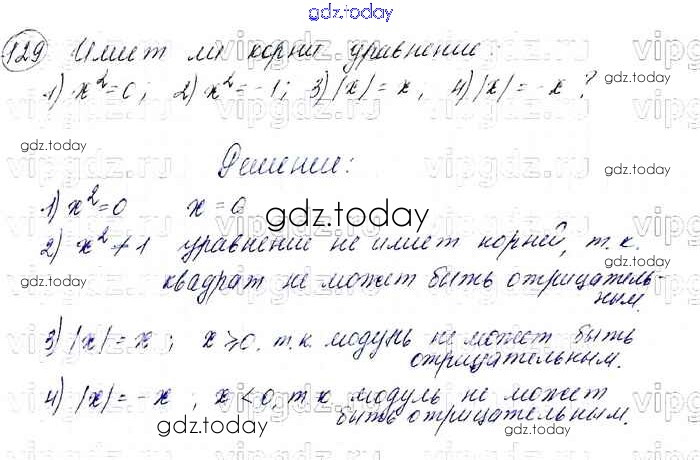 gdz.today
129 Имеет ли корни уравнение:
1) x²=0; 2) x²=-1; 3) |x|=x; 4) |x|=-x?
gdz.today
Решение:
gdz.today
1) x²=0 x=0
gdz.today
2) x²≠1 уравнение не имеет корней, т.к.
квадрат не может быть отрицатель-
ным.
3) |x|=x; x⩾0. т.к. модуль не может быть
отрицательным.
4) |x|=-x, x<0, т.к. модуль не может
быть отрицательным.
gdz.today